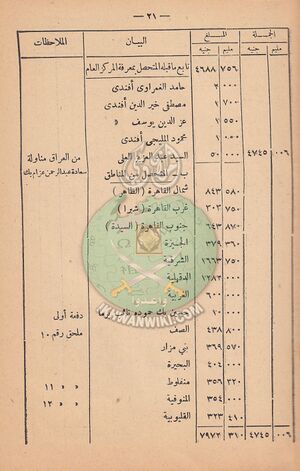 — ٢١ —
الجملة المبلغ البيان الملاحظات
مليم جنيه مليم جنيه
٧٥٦ ٤٦٨٨ تابع ماقبله المتحصل بمعرفة المركز العام
٠٠٠ ٢ حامد الغمراوى أفندى
٧٠٠ ١ مصطفى خير الدين أفندى
٥٥٠ ١ عز الدين يوسف »
٠٠٠ ١ محمود المليجى أفندى
٠٠٦ ٤٧٤٥ ٠٠٠ ٥٠ السيد عبد العزيز العلى من العراق مناولة
ب — المتحصل من المناطق سعادة عبد الرحمن عزام بك
٥٨٠ ٨٤٣ شمال القاهرة (الظاهر)
٧٥٠ ٣٠٣ غرب القاهرة (شبرا)
٨٧٠ ٦٤٣ جنوب القاهرة (السيدة)
٣٦٠ ٣٧٩ الجيزة
٧٥٠ ١٦٦٣ الشرقية
٠٠٠ ١٢٨٣ الدقهلية
٠٠٠ ٦٠٠ الغربية
٠٠٠ ١٠ بك حموده
دفعة أولى
٨٠٠ ٤٣٨ الصف ملحق رقم ١٠
٥٧٠ ٣٦٩ بنى مزار
٠٠٠ ٤٠٤ البحيرة
٢٢٠ ٣٥٦ منفلوط » » ١١
٠٠٠ ٣٥٤ المنوفية » » ١٢
٤١٠ ٣٢٣ القليوبية
٠٠٦ ٤٧٤٥ ٣١٠ ٧٩٧٢
وأعدوا
IKHWANWIKI.COM